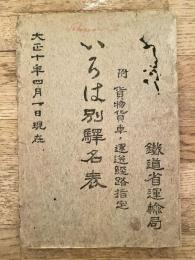 鐵道省運輸局
附 貨物貨車・運送經路指定
いろは別驛名表
大正十年四月一日現在